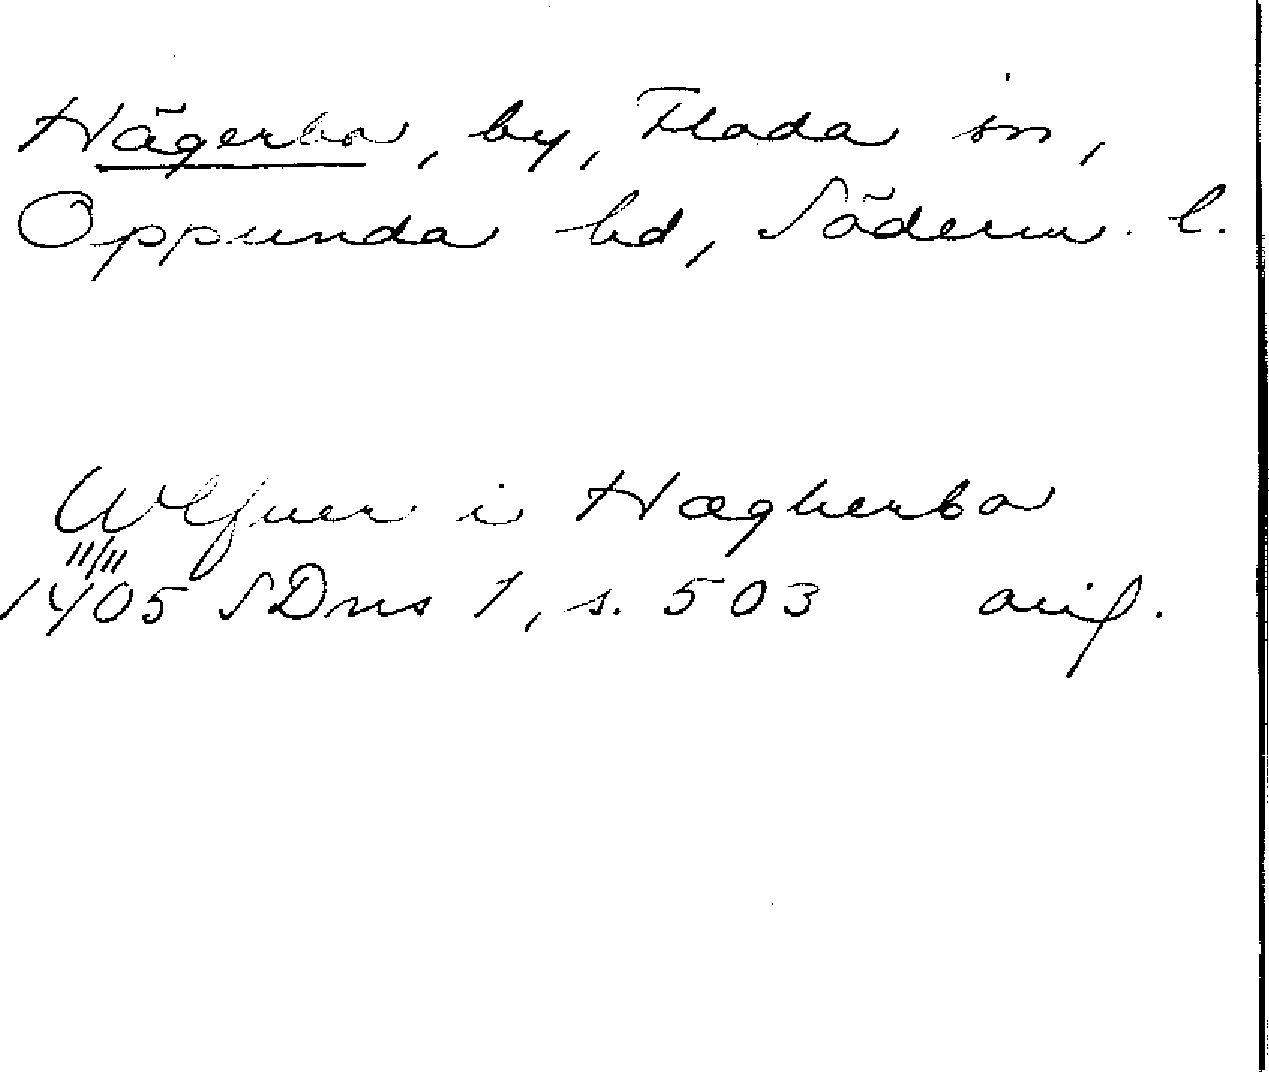 Hägerbo, by, Floda sn,
Oppunda hd, Söderm. l.
Wlfuer i Hægherbo
11/11
1405 SDns 1, s. 503 avif.